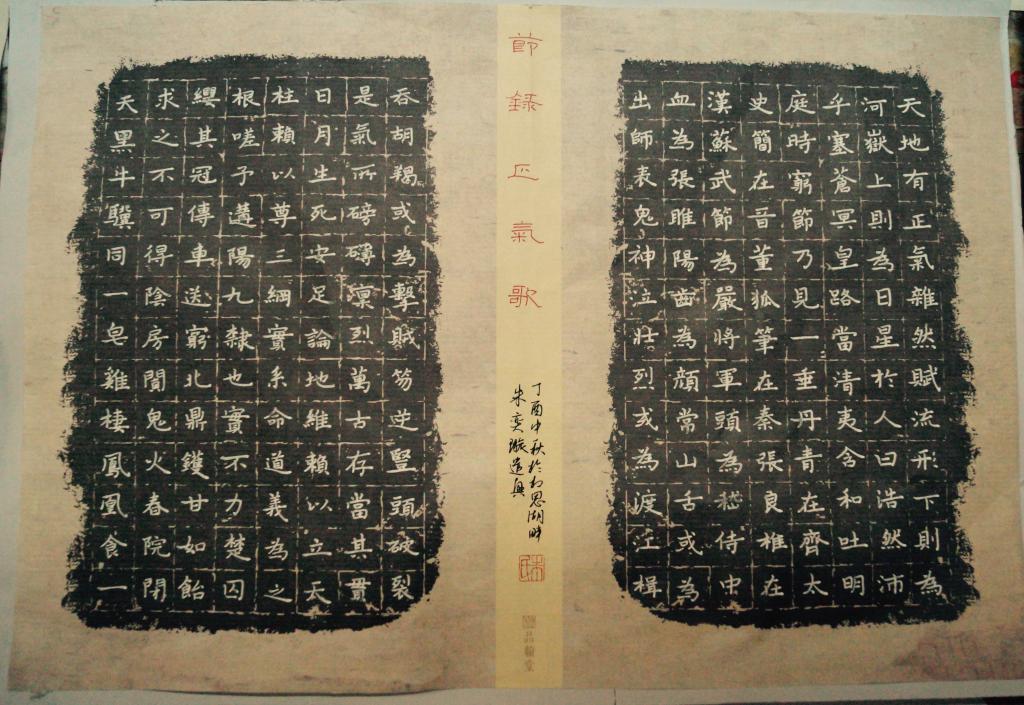 天地有正氣雜然賦流形下則為
河嶽上則為日星於人曰浩然沛
乎塞蒼冥皇路當清夷含和吐明
庭時窮節乃見一垂丹青在齊太
史簡在晉董狐筆在秦張良椎在
漢蘇武節為嚴將軍頭為嵇侍中
血為張睢陽齒為顏常山舌或為
出師表鬼神泣壯烈或為渡江楫
節錄正氣歌
丁酉中秋於相思湖畔
朱奕璇遣興
品翰堂
吞胡羯或為擊賊笏逆豎頭破裂
是氣所磅礴凜烈萬古存當其貫
日月生死安足論地維賴以立天
柱賴以尊三綱實系命道義為之
根嗟予遘陽九隸也實不力楚囚
纓其冠傳車送窮北鼎鑊甘如飴
求之不可得陰房闃鬼火春院閉
天黑牛驥同一皂雞棲鳳凰食一